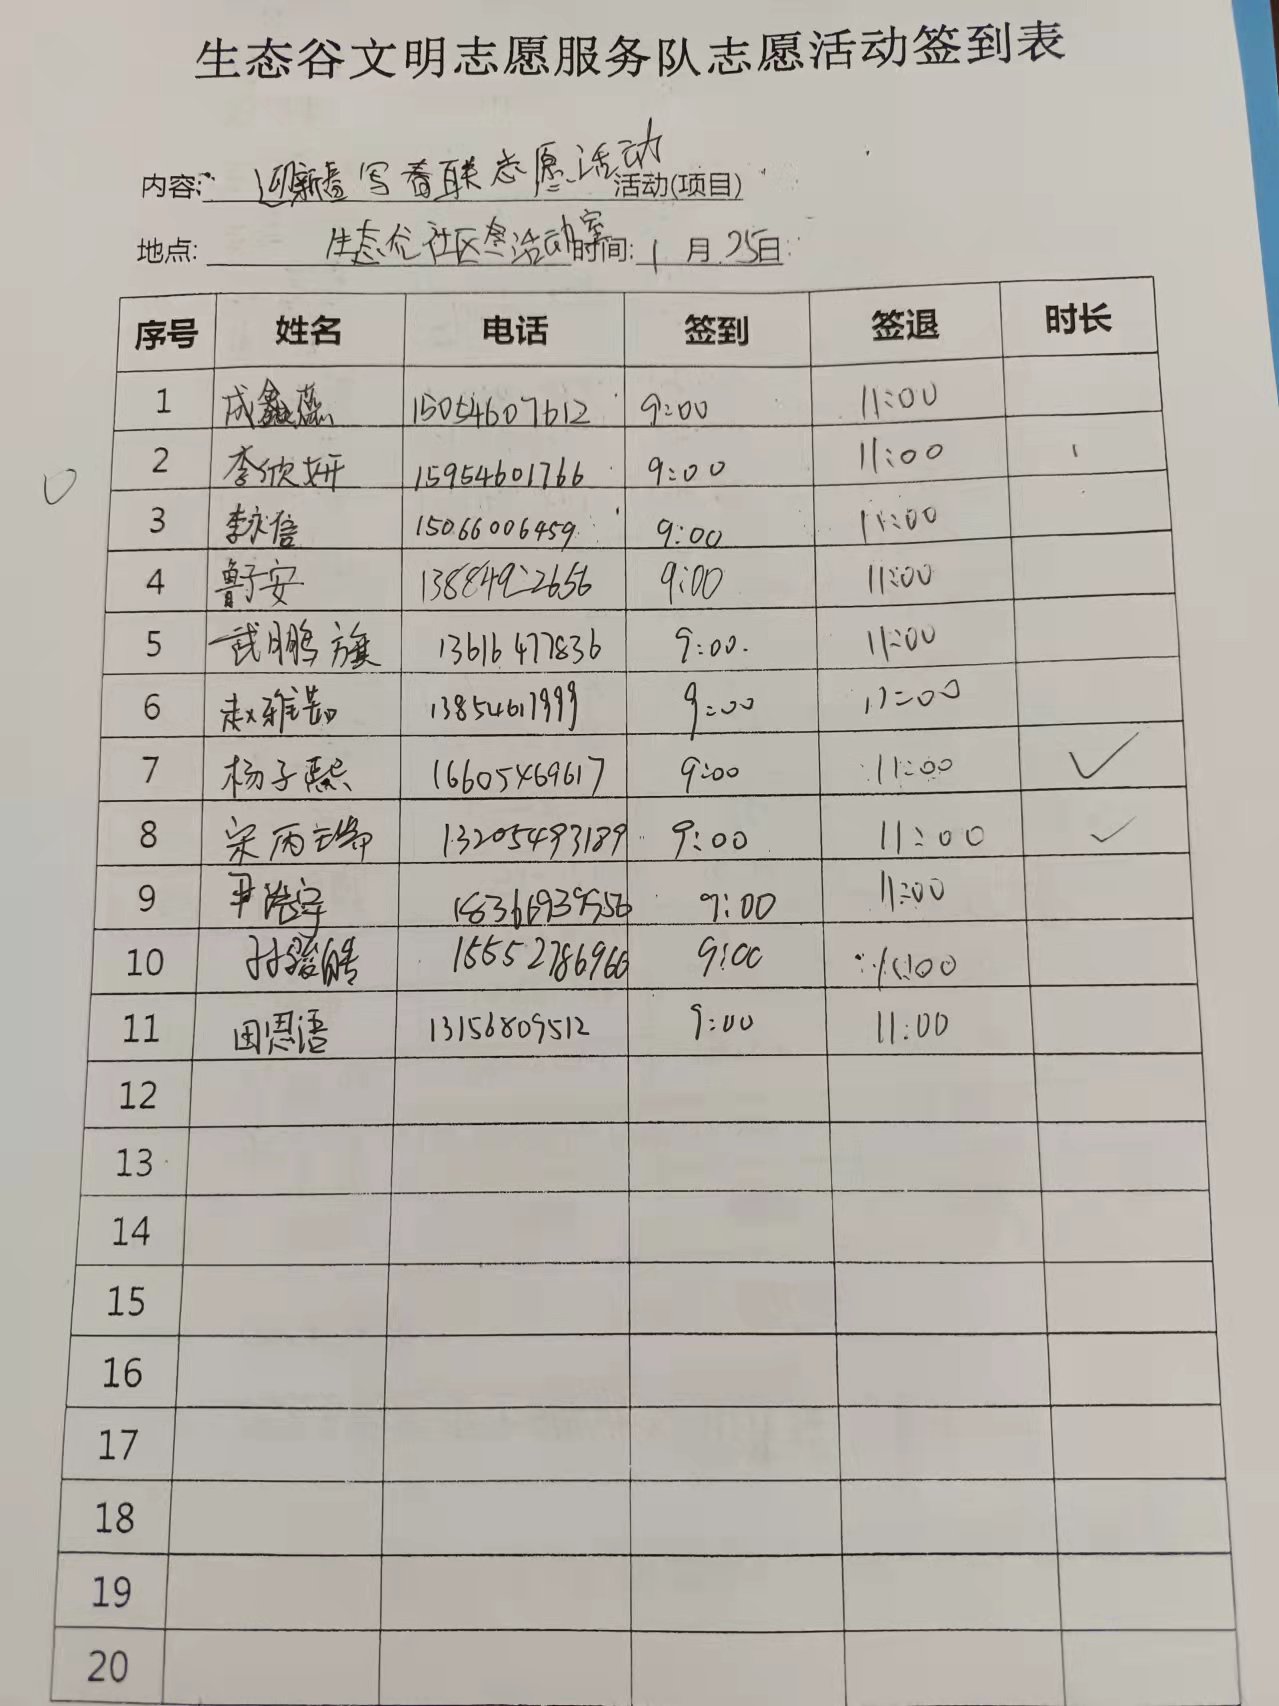 生态谷文明志愿服务队志愿活动签到表
内容: 迎新春写春联志愿活动 活动(项目)
地点: 生态谷社区活动室 时间: 1 月 25日
序号 姓名 电话 签到 签退 时长
1 成鑫蕊 15054607612 9:00 11:00
2 李欣妍 15954601766 9:00 11:00
3 李永信 15066006459 9:00 11:00
4 鲁子安 9:00 11:00
5 武鹏旗 13616477836 9:00 11:00
6 赵雅茹 13854617999 9:00 11:00
7 杨子熙 16605469617 9:00 11:00 ✓
8 宋丙 13205493189 9:00 11:00 ✓
9 尹浩宇 9:00 11:00
10 孙骏皓 15552786966 9:00 11:00
11 田恩语 13156809512 9:00 11:00
12
13
14
15
16
17
18
19
20